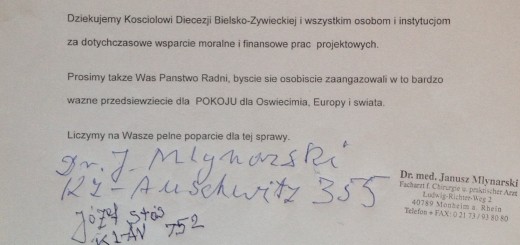 Dziekujemy Kosciolowi Diecezji Bielsko-Zywieckiej i wszystkim osobom i instytucjom
za dotychczasowe wsparcie moralne i finansowe prac projektowych.
Prosimy takze Was Panstwo Radni, byscie sie osobiscie zaangazowali w to bardzo
wazne przedsiewziecie dla POKOJU dla Oswiecimia, Europy i swiata.
Liczymy na Wasze pelne poparcie dla tej sprawy.
Dr. J. Mlynarski
KZ-Auschwitz 355
Józef Stós
KLAU 752
Dr. med. Janusz Mlynarski
Facharzt f. Chirurgie u. praktischer Arzt
Ludwig-Richter-Weg 2
40789 Monheim a. Rhein
Telefon + FAX: 0 21 73 / 93 80 80